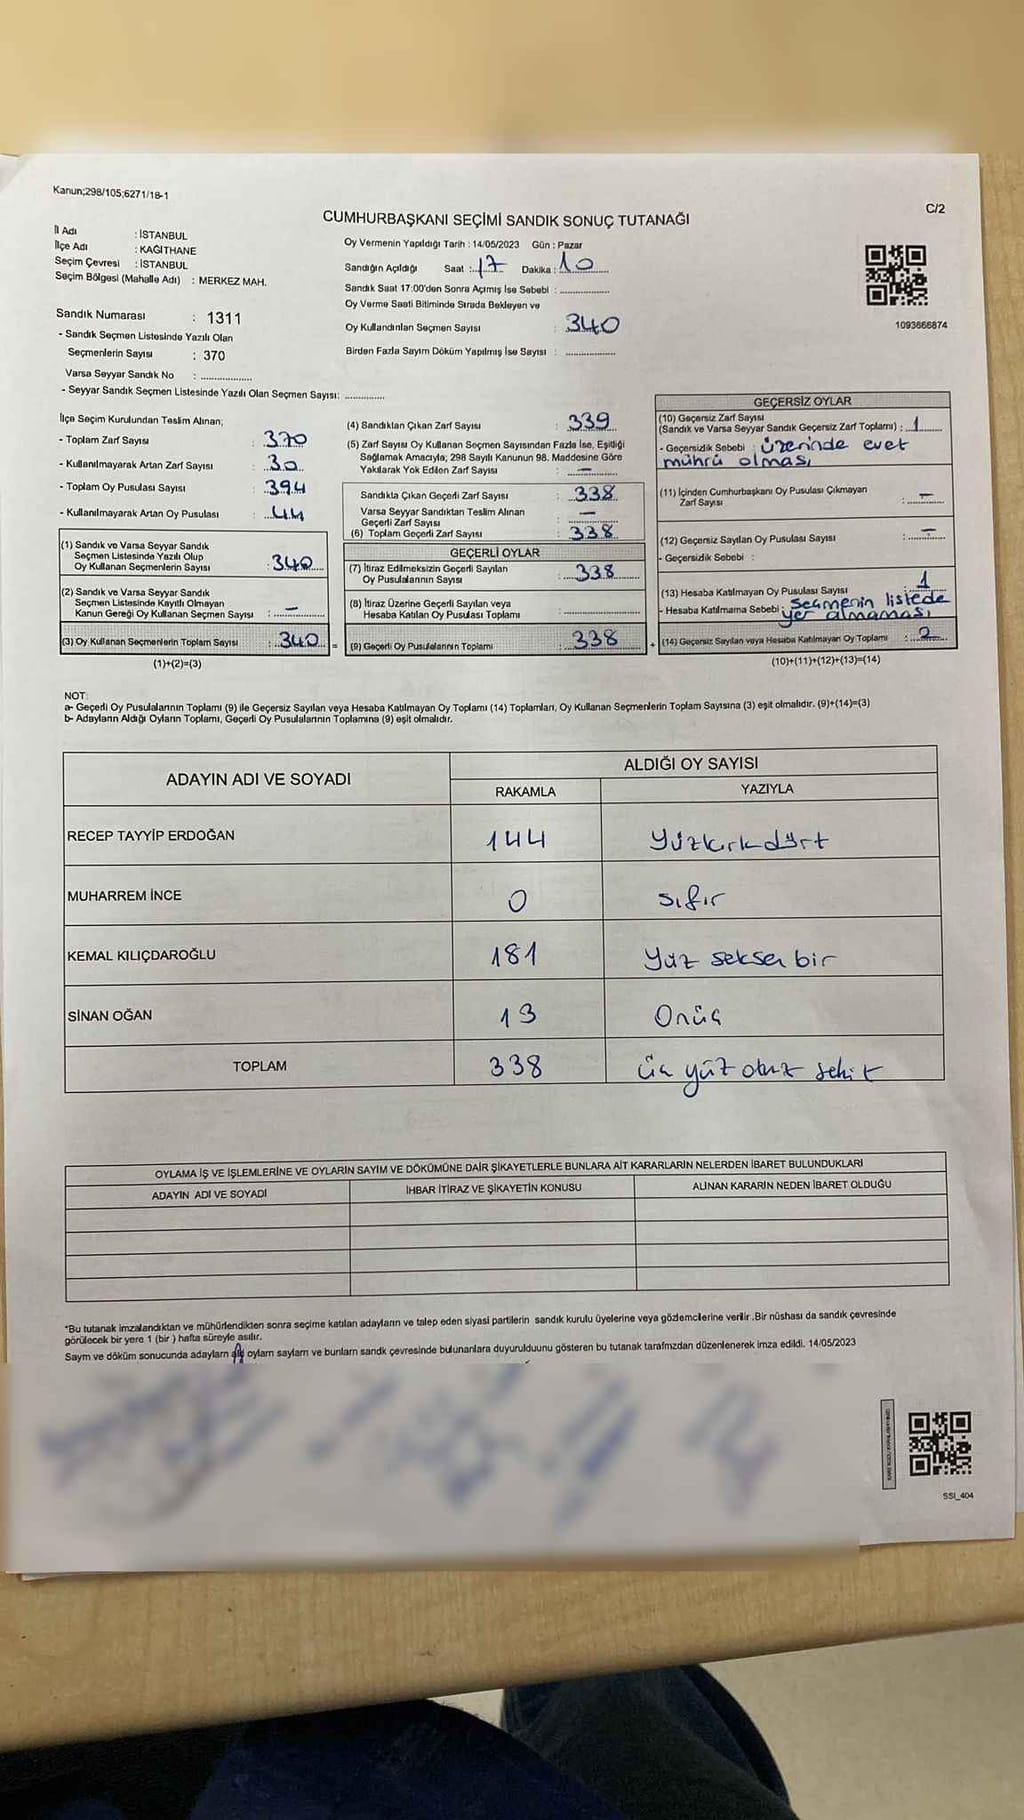 Kanun;298/105;6271/18-1
C/2
CUMHURBAŞKANI SEÇİMİ SANDIK SONUÇ TUTANAĞI
İl Adı : İSTANBUL
İlçe Adı : KAĞITHANE
Seçim Çevresi : İSTANBUL
Seçim Bölgesi (Mahalle Adı) : MERKEZ MAH.
Oy Vermenin Yapıldığı Tarih : 14/05/2023 Gün : Pazar
Sandığın Açıldığı Saat : 17 Dakika : 10
Sandık Saat 17:00'den Sonra Açmış İse Sebebi :
Oy Verme Saati Bitiminde Sırada Bekleyen ve
Oy Kullandırılan Seçmen Sayısı : 340
Birden Fazla Sayım Döküm Yapılmış İse Sayısı :
1093666874
Sandık Numarası : 1311
- Sandık Seçmen Listesinde Yazılı Olan
Seçmenlerin Sayısı : 370
Varsa Seyyar Sandık No :
- Seyyar Sandık Seçmen Listesinde Yazılı Olan Seçmen Sayısı:
İlçe Seçim Kurulundan Teslim Alınan;
- Toplam Zarf Sayısı : 370
- Kullanılmayarak Artan Zarf Sayısı : 30
- Toplam Oy Pusulası Sayısı : 394
- Kullanılmayarak Artan Oy Pusulası : 44
(1) Sandık ve Varsa Seyyar Sandık
Seçmen Listesinde Yazılı Olup
Oy Kullanan Seçmenlerin Sayısı : 340
(2) Sandık ve Varsa Seyyar Sandık
Seçmen Listesinde Kayıtlı Olmayan
Kanun Gereği Oy Kullanan Seçmen Sayısı : —
(3) Oy Kullanan Seçmenlerin Toplam Sayısı : 340 =
(1)+(2)=(3)
(4) Sandıktan Çıkan Zarf Sayısı : 339
(5) Zarf Sayısı Oy Kullanan Seçmen Sayısından Fazla İse, Eşitliği
Sağlamak Amacıyla; 298 Sayılı Kanunun 98. Maddesine Göre
Yakılarak Yok Edilen Zarf Sayısı : —
Sandıkla Çıkan Geçerli Zarf Sayısı : 338
Varsa Seyyar Sandıktan Teslim Alınan
Geçerli Zarf Sayısı : —
(6) Toplam Geçerli Zarf Sayısı : 338
GEÇERLİ OYLAR
(7) İtiraz Edilmeksizin Geçerli Sayılan
Oy Pusulalarının Sayısı : 338
(8) İtiraz Üzerine Geçerli Sayılan veya
Hesaba Katılan Oy Pusulası Toplamı :
(9) Geçerli Oy Pusulalarının Toplamı : 338 +
GEÇERSİZ OYLAR
(10) Geçersiz Zarf Sayısı
(Sandık ve Varsa Seyyar Sandık Geçersiz Zarf Toplamı) : 1
- Geçersizlik Sebebi : üzerinde evet
mührü olması
(11) İçinden Cumhurbaşkanı Oy Pusulası Çıkmayan
Zarf Sayısı : —
(12) Geçersiz Sayılan Oy Pusulası Sayısı : —
- Geçersizlik Sebebi :
(13) Hesaba Katılmayan Oy Pusulası Sayısı : 1
- Hesaba Katılmama Sebebi : seçmenin listede
yer almaması
(14) Geçersiz Sayılan veya Hesaba Katılmayan Oy Toplamı : 2
(10)+(11)+(12)+(13)=(14)
NOT:
a- Geçerli Oy Pusulalarının Toplamı (9) ile Geçersiz Sayılan veya Hesaba Katılmayan Oy Toplamı (14) Toplamları, Oy Kullanan Seçmenlerin Toplam Sayısına (3) eşit olmalıdır. (9)+(14)=(3)
b- Adayların Aldığı Oyların Toplamı, Geçerli Oy Pusulalarının Toplamına (9) eşit olmalıdır.
ADAYIN ADI VE SOYADI
ALDIĞI OY SAYISI
RAKAMLA YAZIYLA
RECEP TAYYİP ERDOĞAN 144 Yüzkırkdört
MUHARREM İNCE 0 sıfır
KEMAL KILIÇDAROĞLU 181 Yüz seksen bir
SİNAN OĞAN 13 Onüç
TOPLAM 338 üç yüz otuz sekiz
OYLAMA İŞ VE İŞLEMLERİNE VE OYLARIN SAYIM VE DÖKÜMÜNE DAİR ŞİKAYETLERLE BUNLARA AİT KARARLARIN NELERDEN İBARET BULUNDUKLARI
ADAYIN ADI VE SOYADI İHBAR İTİRAZ VE ŞİKAYETİN KONUSU ALINAN KARARIN NEDEN İBARET OLDUĞU
*Bu tutanak imzalandıktan ve mühürlendikten sonra seçime katılan adayların ve talep eden siyasi partilerin sandık kurulu üyelerine veya gözlemcilerine verilir .Bir nüshası da sandık çevresinde
görülecek bir yere 1 (bir ) hafta süreyle asılır.
Saym ve döküm sonucunda adaylarn oylarn saylarn ve bunlarn sandk çevresinde bulunanlara duyurulduunu gösteren bu tutanak tarafmzdan düzenlenerek imza edildi. 14/05/2023
SSI_404